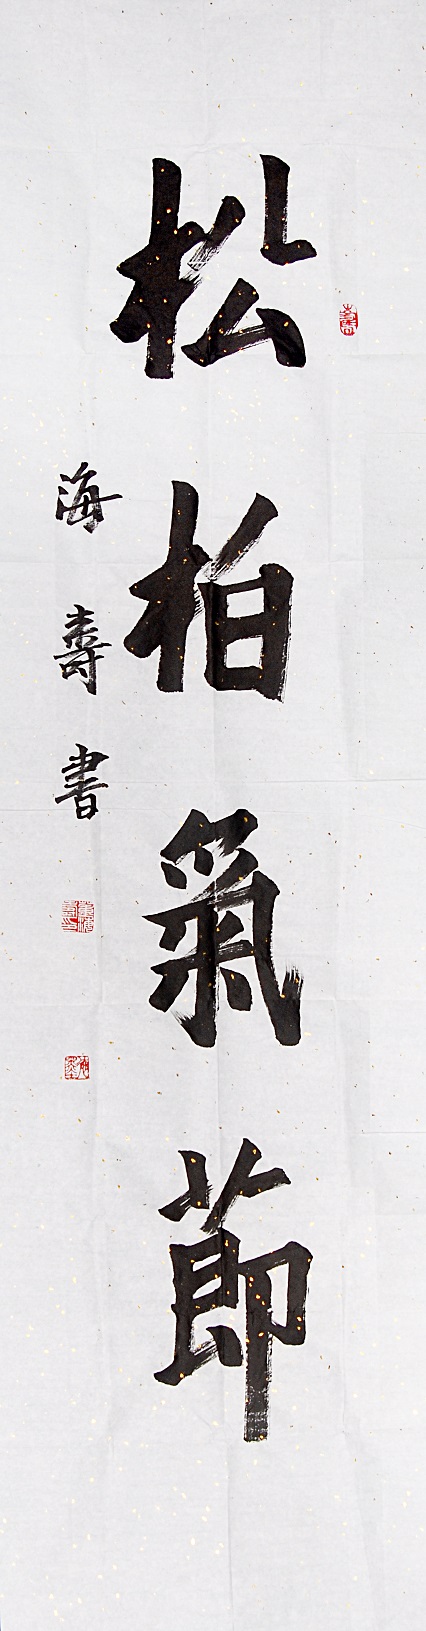 松柏氣節
海壽書